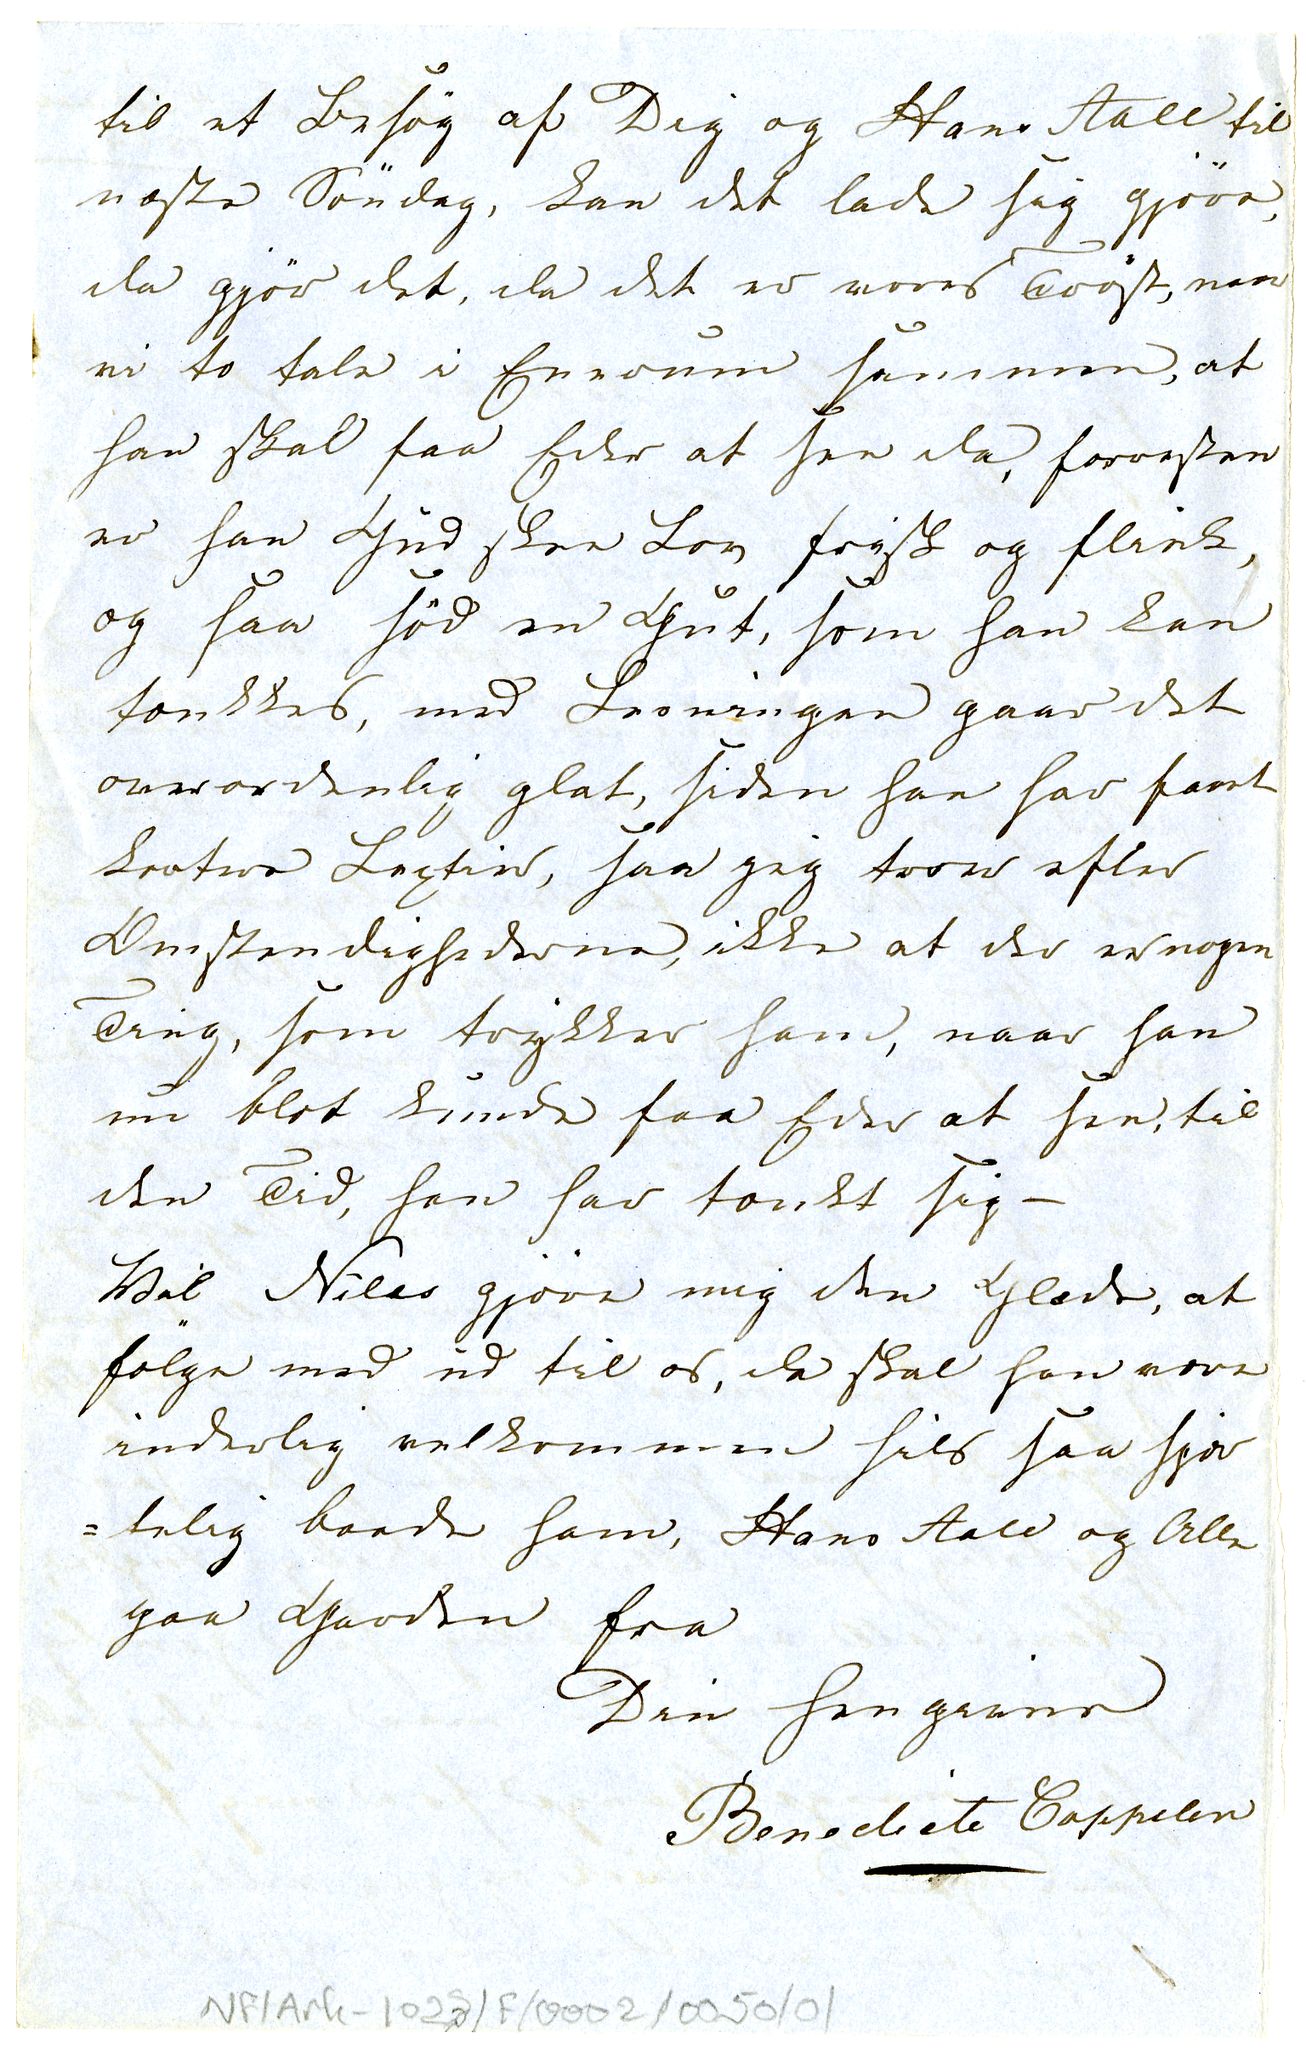 til et Besög af Dig og Hans Aall til
næste Söndag, kan det lade sig gjöre,
da gjör det, da det er vores Tröst, naar
vi to tale i Enerum sammen, at
han skal faa Eder at see da, forresten
er han Gud skee Lov frisk og flink,
og saa söd en Gut, som han kan
tænkkes, med Læsningen gaar det
overordenlig glat, siden han har faaet
kortere Lexier, saa jeg troer efter
Omstændighederne, ikke at der er nogen
Ting, som trykker ham, naar han
nu blot kunde faa Eder at see, til
den Tid, han har tænkt sig—
Vil Niels gjöre mig den Glæde, at
fölge med ud til os, da skal han være
inderlig velkommen hils saa hjer
=telig baade ham, Hans Aall og Alle
paa Gaarden fra
Din hengivne
Benedicte Cappelen
NF/Ark-1023/F/0002/0050/01